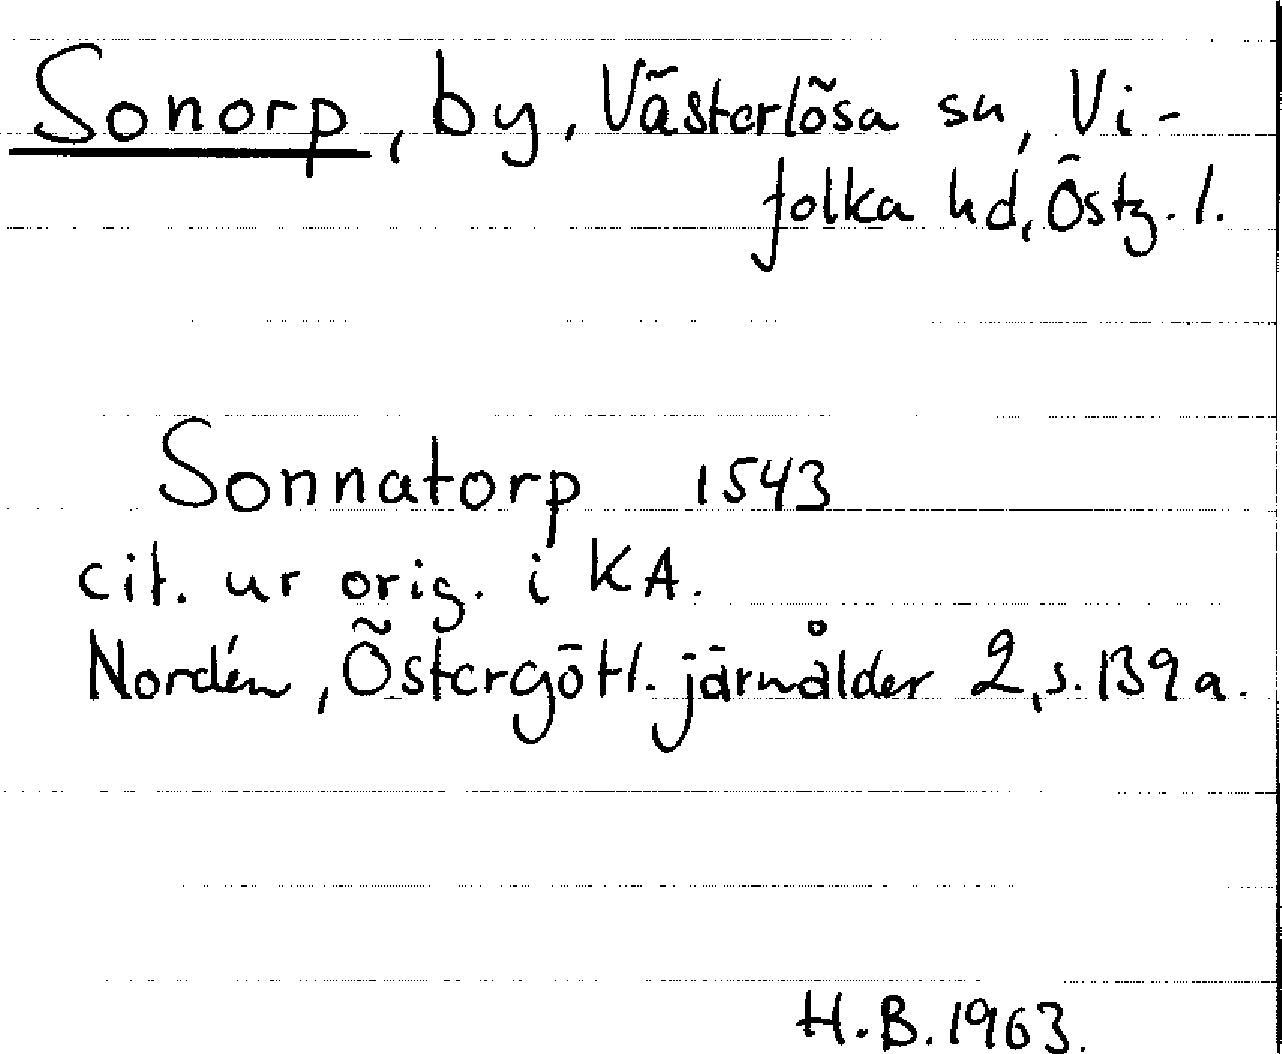 Sonorp, by, Västerlösa sn, Vi-
folka hd, Östg. l.
Sonnatorp 1543
cit. ur orig. i KA.
Nordén, Östergötl. järnålder 2, s. 139 a.
H.B. 1963.